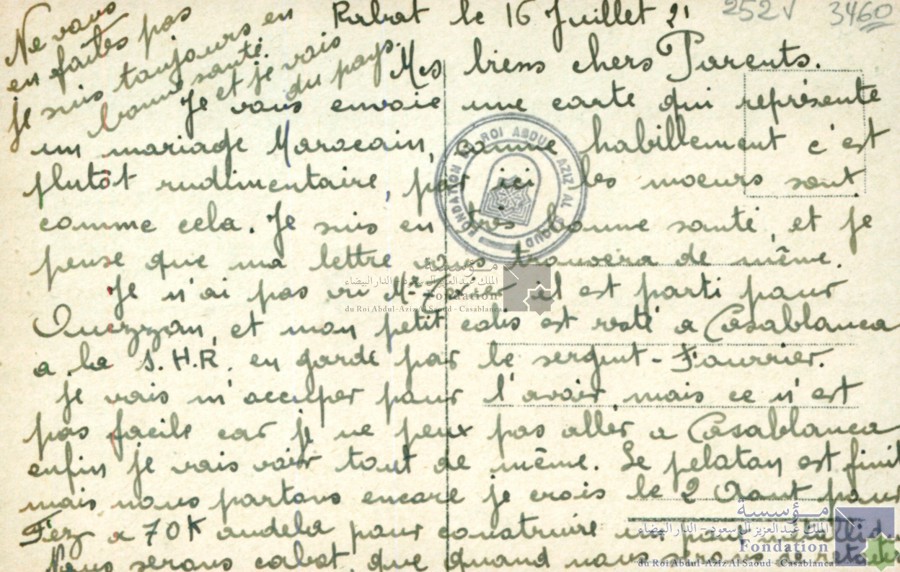 Rabat le 16 Juillet 21
252v 3460
Ne vous
en faites pas
je suis toujours en
bonne santé.
et je vais
du pays.
Mes biens chers Parents.
Je vous envoie une carte qui représente
un mariage Marocain, comme habillement c'est
plutôt rudimentaire, par ici les moeurs sont
comme cela. Je suis en très bonne santé, et je
pense que ma lettre vous trouvera de même.
Je n'ai pas vu Mr il est parti pour
Ouezzan, et mon petit colis est resté a Casablanca
a la S.H.R. en garde par le sergent-Fourrier.
Je vais m'occuper pour l'avoir mais ce n'est
pas facile car je ne peux pas aller a Casablanca
enfin je vais voir tout de même. Le peloton est finit
mais nous partons encore je crois le 2 Aout pour
Fez a 70K audela pour construire un pont
Nous serons cabot que quand nous serons de
FONDATION DU ROI ABDUL AZIZ AL SAOUD
مؤسسة
الملك عبد العزيز آل سعود - الدار البيضاء
Fondation
du Roi Abdul-Aziz Al Saoud - Casablanca
مؤسسة
الملك عبد العزيز آل سعود - الدار البيضاء
Fondation
du Roi Abdul-Aziz Al Saoud - Casablanca